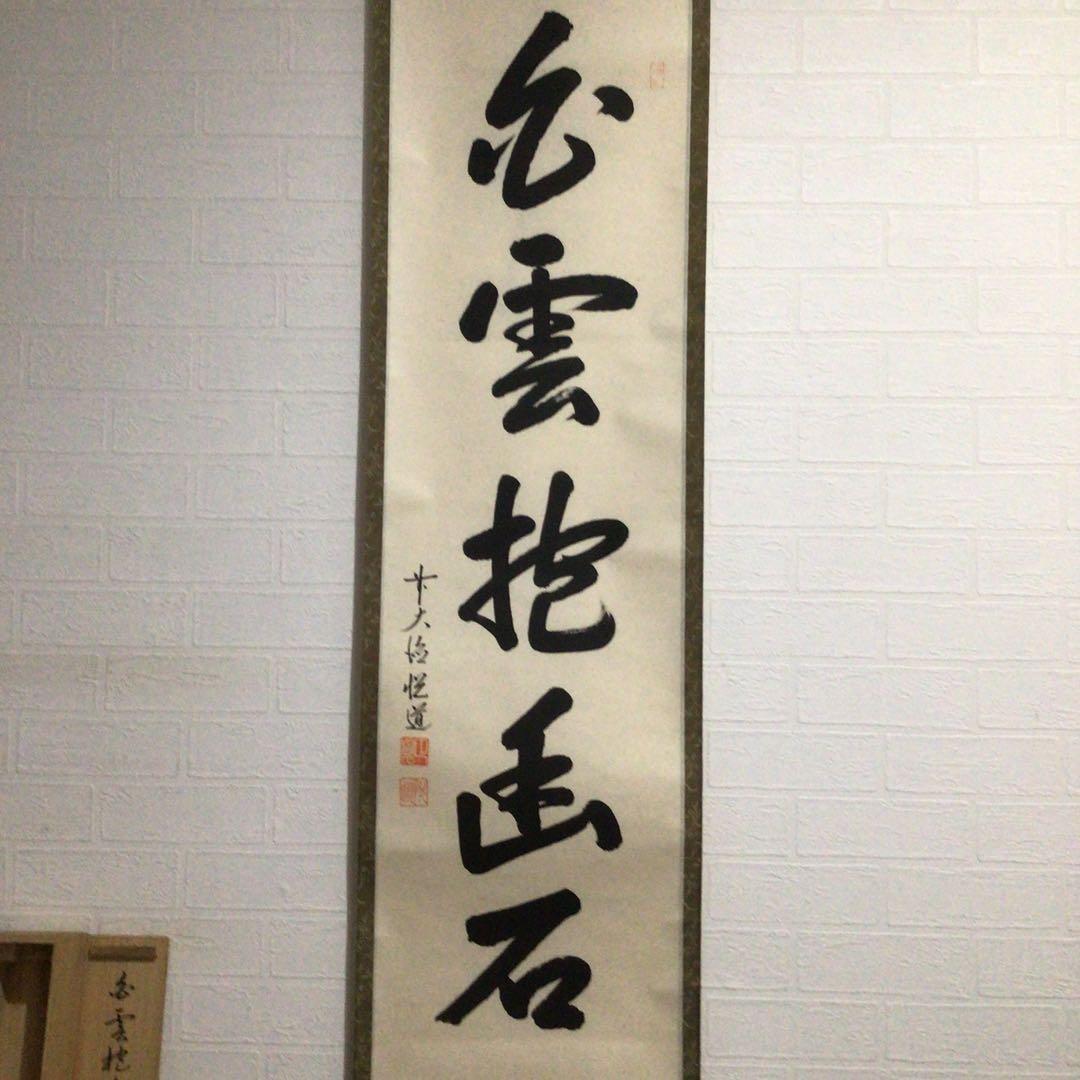 白雲抱幽石
前大徳悦道
白雲抱